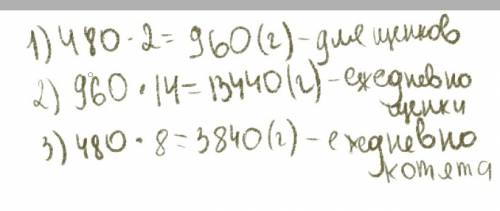 1) 480 · 2 = 960 (г) - для щенков
2) 960 · 14 = 13440 (г) - ежедневно
щенки
3) 480 · 8 = 3840 (г) - ежедневно
котята